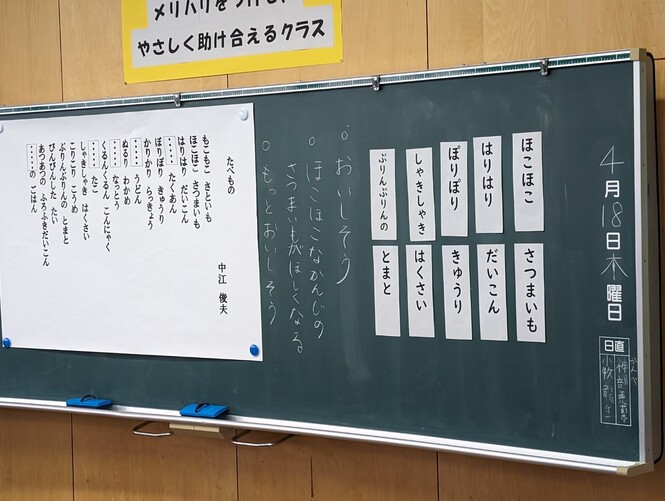 メリハリをつけて、
やさしく助け合えるクラス
4月18日木曜日
日直
ほこほこ さつまいも
はりはり だいこん
ぽりぽり きゅうり
しゃきしゃき はくさい
ぷりんぷりんの とまと
。おいしそう
。ほこほこなかんじの
さつまいもがほしくなる
。もっとおいしそう
たべもの
中江 俊夫
もこもこ さといも
ほこほこ さつまいも
はりはり だいこん
・・・・ たくあん
ぽりぽり きゅうり
かりかり らっきょう
・・・・ うどん
ぬるり わかめ
・・・・ なっとう
くるんくるん こんにゃく
・・・・ たこ
しゃきしゃき はくさい
こりこり こうめ
ぷりんぷりんの とまと
ぴんぴんした たい
あつあつの ふろふきだいこん
・・・・の ごはん